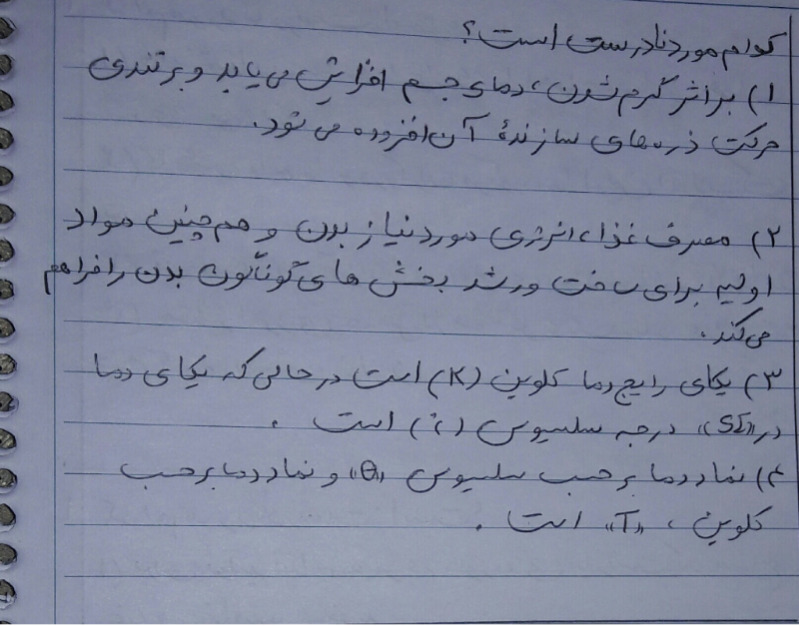 کدام مورد نادرست است؟
۱) بر اثر گرم شدن، دمای جسم افزایش می یابد و بر تندی
حرکت ذره های سازندهٔ آن افزوده می شود.
۲) مصرف غذا، انرژی مورد نیاز بدن و هم چنین مواد
اولیه برای ساخت و رشد بخش های گوناگون بدن را فراهم
می کند.
۳) یکای رایج دما کلوین (K) است در حالی که یکای دما
در «SI» درجه سلسیوس (°C) است.
۴) نماد دما بر حسب سلسیوس «θ» و نماد دما بر حسب
کلوین، «T» است.